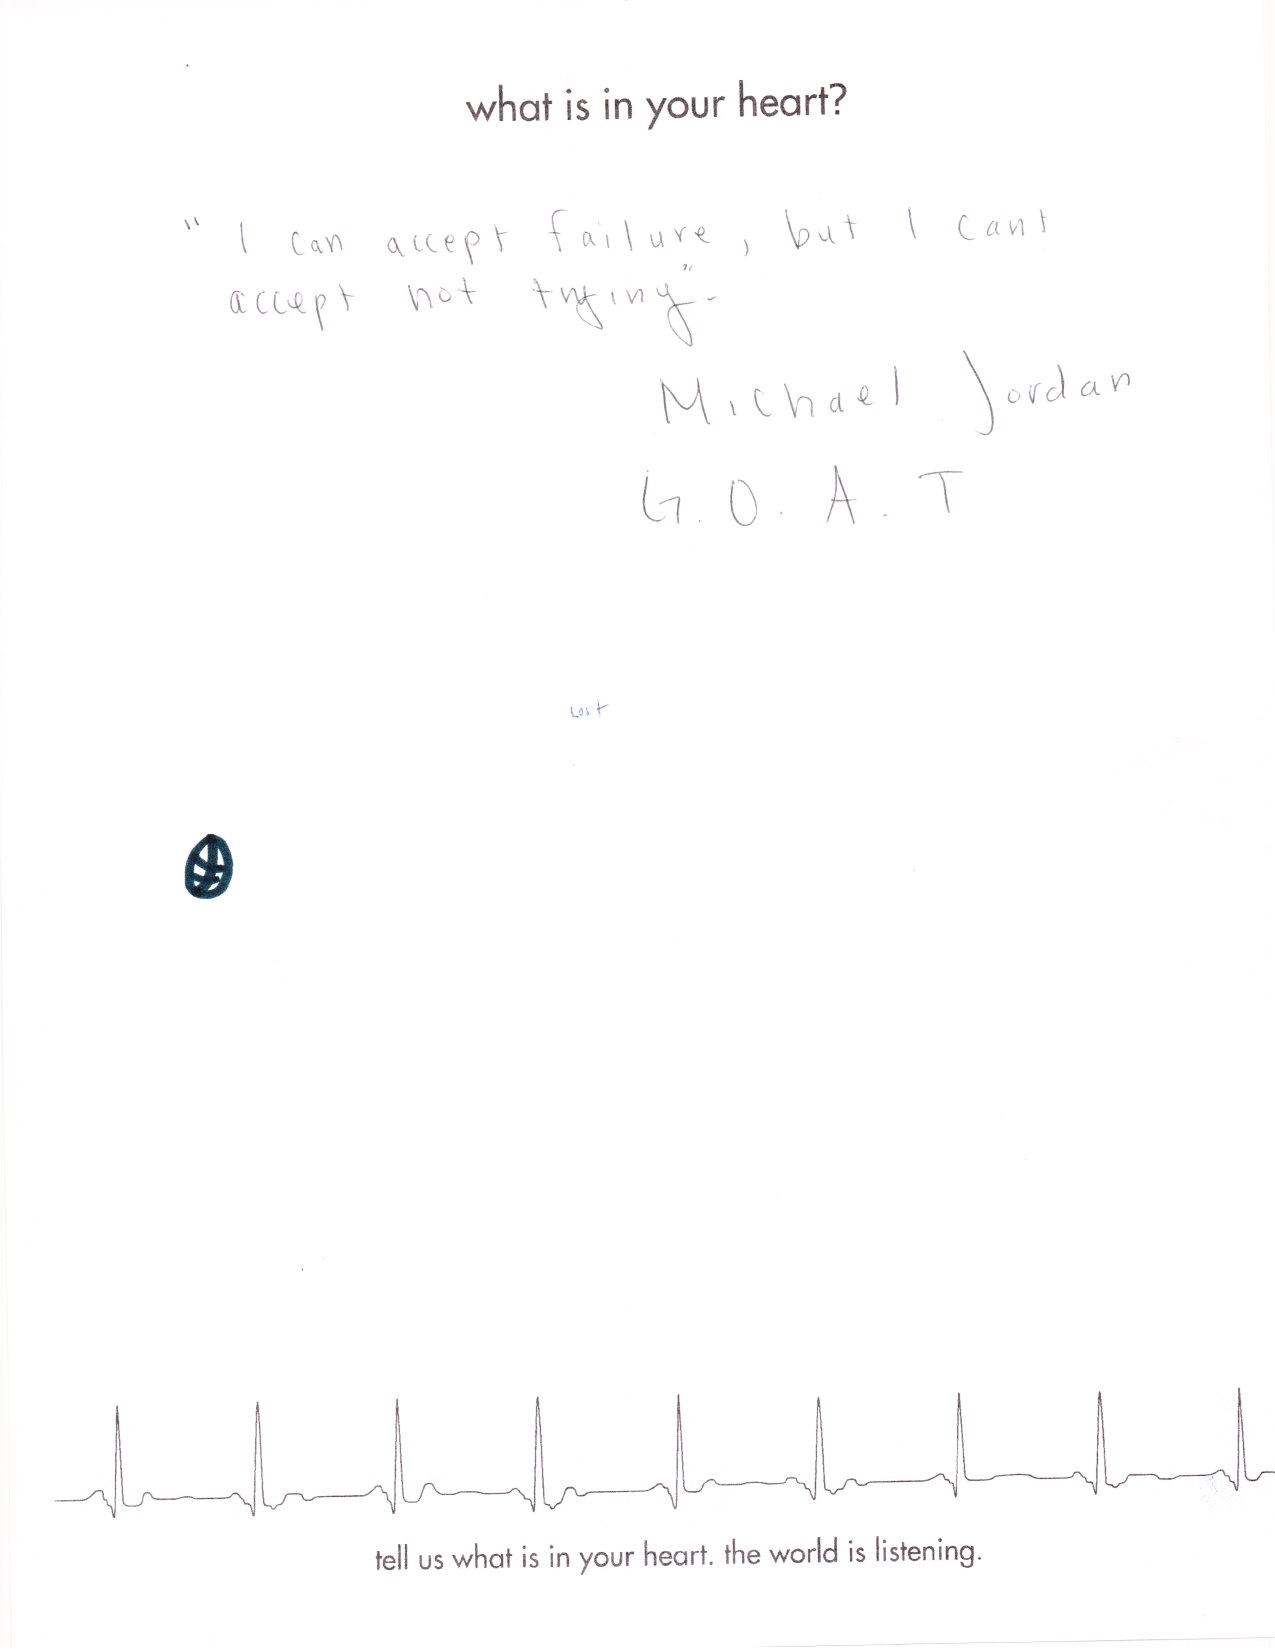 what is in your heart?
" I can accept failure, but I cant
accept not trying"-
Michael Jordan
G. O. A. T
Lost
tell us what is in your heart. the world is listening.